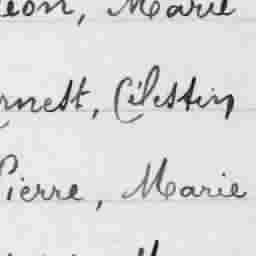 éon, Marie
rnest, Célestin
Pierre, Marie